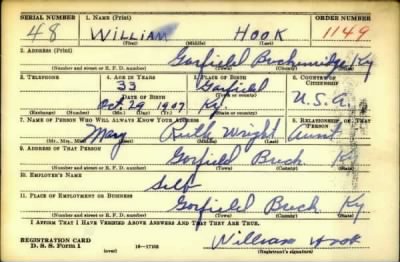 SERIAL NUMBER 1. NAME (Print) ORDER NUMBER
48 WILLIAM HOOK 1149
(First) (Middle) (Last)
2. ADDRESS (Print)
Garfield Breckinridge Ky
(Number and street or R. F. D. number) (Town) (County) (State)
3. TELEPHONE 4. AGE IN YEARS 5. PLACE OF BIRTH 6. COUNTRY OF CITIZENSHIP
33 Garfield
DATE OF BIRTH (Town or county)
Oct. 29 1907 Ky. U.S.A.
(Exchange) (Number) (Mo.) (Day) (Yr.) (State or country)
7. NAME OF PERSON WHO WILL ALWAYS KNOW YOUR ADDRESS 8. RELATIONSHIP OF THAT PERSON
Mary Ruth Wright Aunt
(Mr., Mrs., Miss) (First) (Middle) (Last)
9. ADDRESS OF THAT PERSON
Garfield Breck Ky
(Number and street or R. F. D. number) (Town) (County) (State)
10. EMPLOYER'S NAME
Self
11. PLACE OF EMPLOYMENT OR BUSINESS
Garfield Breck Ky
(Number and street or R. F. D. number) (Town) (County) (State)
I AFFIRM THAT I HAVE VERIFIED ABOVE ANSWERS AND THAT THEY ARE TRUE.
REGISTRATION CARD
D. S. S. Form 1 (over) 16—17105 William Hook
(Registrant's signature)